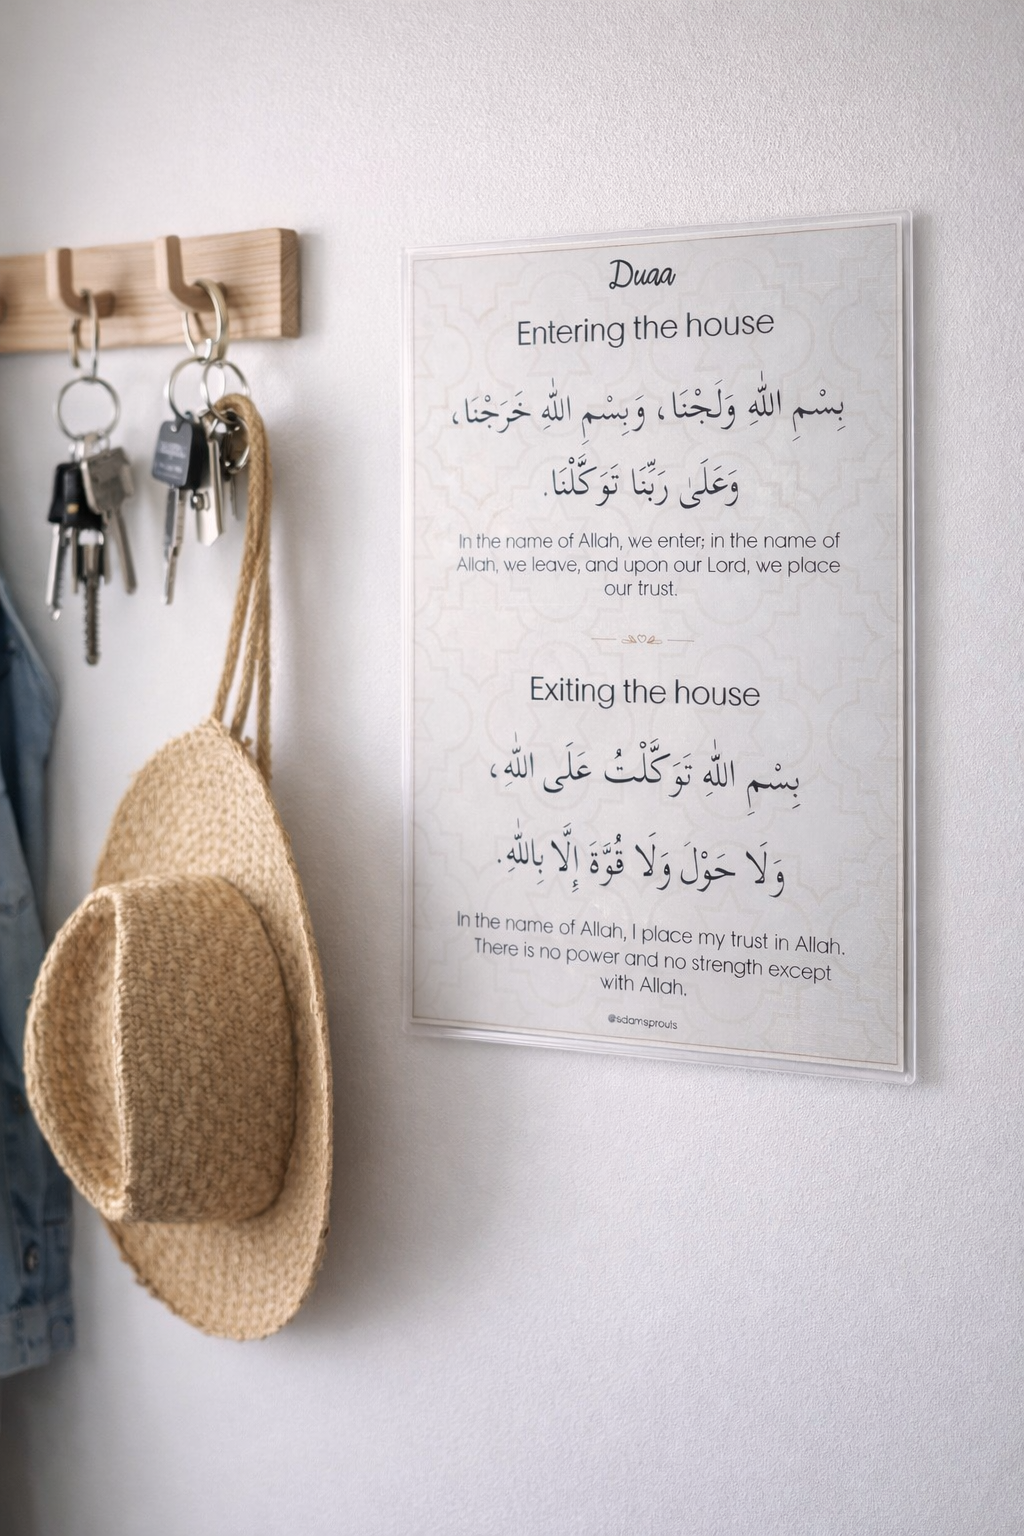 Duaa
Entering the house
بِسْمِ اللّٰهِ وَلَجْنَا، وَبِسْمِ اللّٰهِ خَرَجْنَا،
وَعَلَىٰ رَبِّنَا تَوَكَّلْنَا.
In the name of Allah, we enter; in the name of
Allah, we leave, and upon our Lord, we place
our trust.
Exiting the house
بِسْمِ اللّٰهِ تَوَكَّلْتُ عَلَى اللّٰهِ،
وَلَا حَوْلَ وَلَا قُوَّةَ إِلَّا بِاللّٰهِ.
In the name of Allah, I place my trust in Allah.
There is no power and no strength except
with Allah.